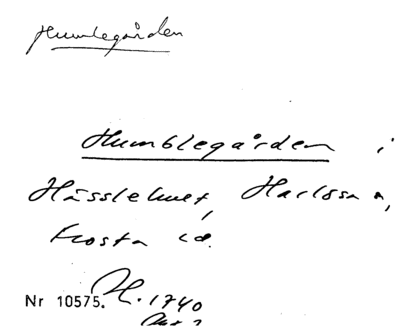 Humlegården
Humblegården i
Hässlehult, Harlösa s,
Frosta hd.
Nr 10575. H. 1740